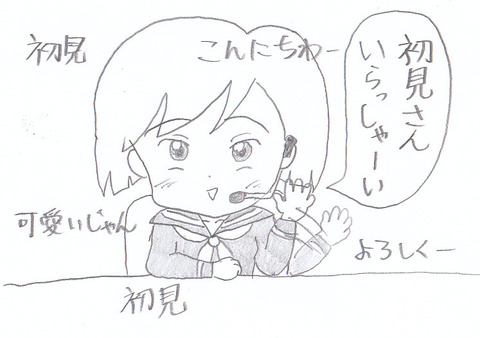 初見
こんにちわー
初見さん
いらっしゃーい
可愛いじゃん
よろしくー
初見